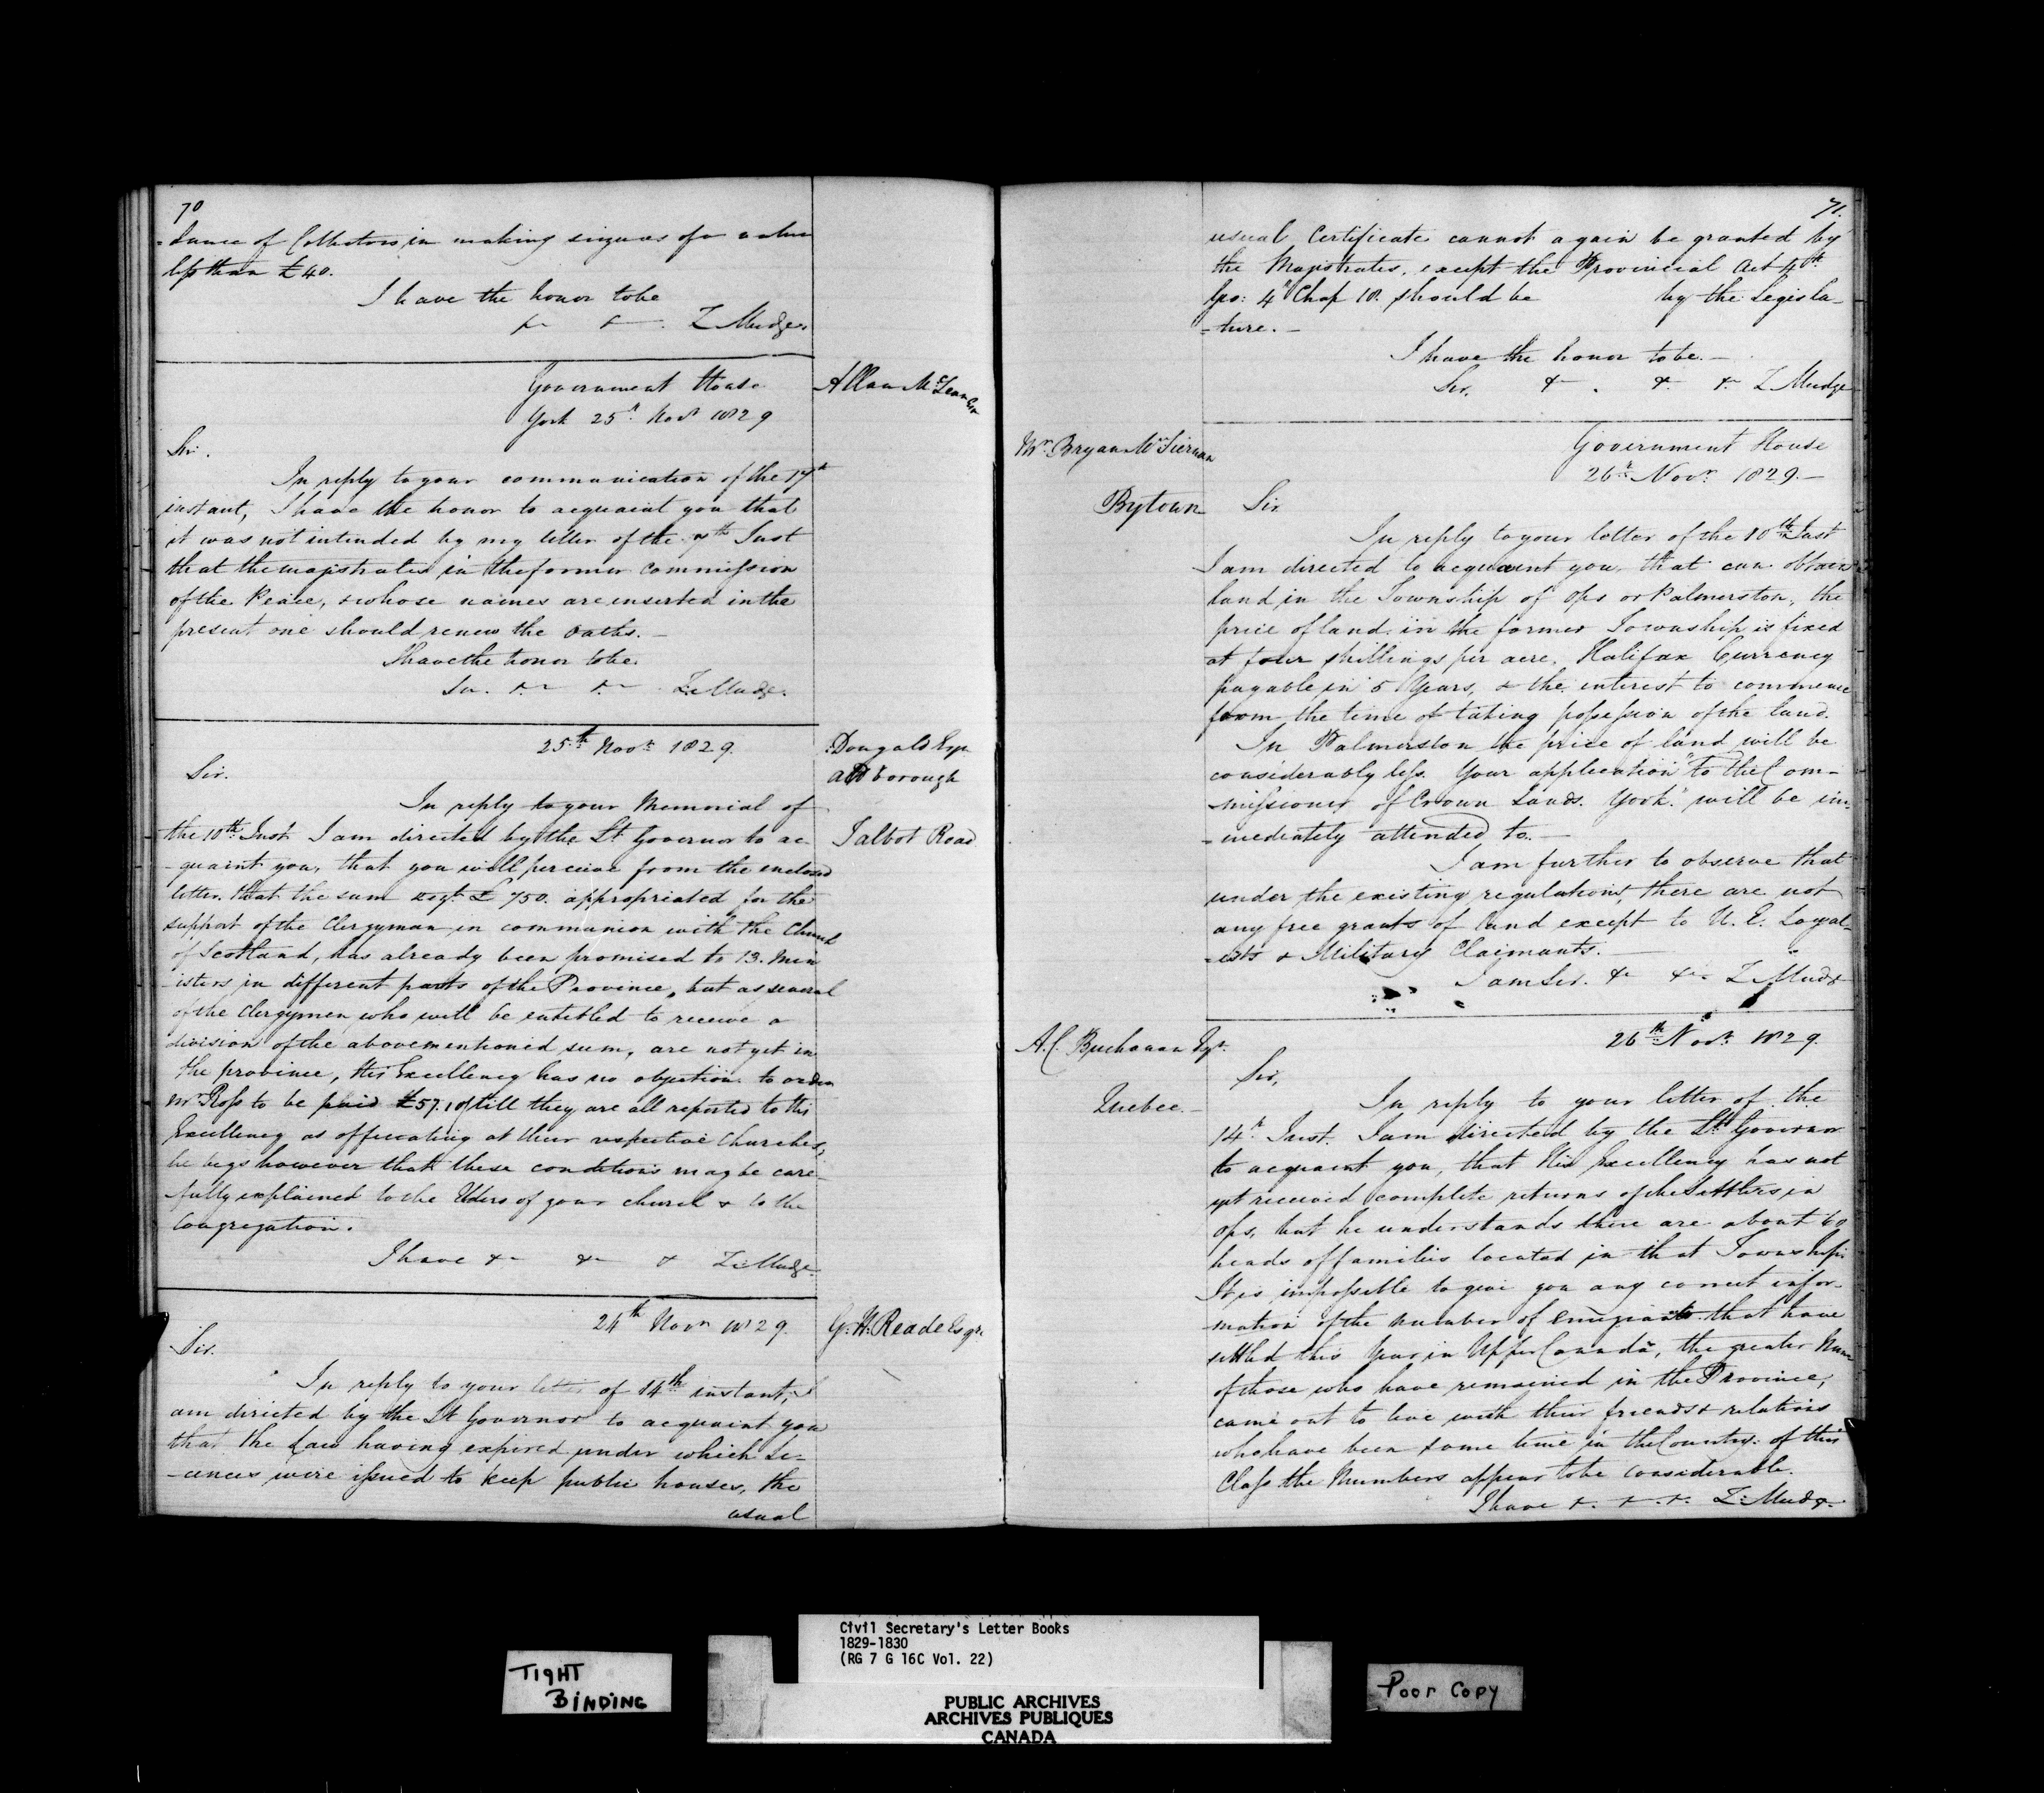 70
-dance of Collectors in making seizures of a value
less than £40.
I have the honor to be
&c &c. Z Mudge.
Government House
York 25th Novr 1829
Allan McLean Esqr
Sir.
In reply to your communication of the 17th
instant, I have the honor to acquaint you that
it was not intended by my letter of the Inst
that the magistrates in the former Commission
of the Peace, & whose names are inserted in the
present one should renew the Oaths. -
I have the honor to be.
Sir. &c &c Z. Mudge.
25th Novr 1829.
Dougald Esqr
Aldborough
Talbot Road
Sir.
In reply to your Memorial of
the 10th Inst I am directed by the Lt Governor to ac-
-quaint you, that you will perceive from the enclosed
letter. that the sum £750. appropriated for the
support of the Clergyman in communion with the Church
of Scotland, has already been promised to 13. Min
-isters in different parts of the Province, but as several
of the Clergymen who will be entitled to receive a
division of the abovementioned sum, are not yet in
the province, His Excellency has no objection to order
Mr Ross to be paid £57.10/ till they are all reported to His
Excellency as officiating at their respective Churches,
he begs however that these conditions may be care-
-fully explained to the Elders of your church & to the
Congregation.
I have &c &c & Z. Mudge.
24th Novr 1829.
G. H. Reade Esqr.
Sir.
In reply to your letter of 14th instant, I
am directed by the Lt Governor to acquaint you
that the Law having expired under which Li-
-cences were issued to keep public houses, the
usual
71.
usual Certificate cannot again be granted by
the Magistrates, except the Provincial Act 4th
Geo: 4th Chap 10. should be by the Legisla-
-ture. -
I have the honor to be. -
Sir, &c . &c. &c Z Mudge
Government House
26th Novr 1829. -
Mr Bryan McTiernan
Bytown
Sir
In reply to your letter of the 10th Inst
I am directed to acquaint you, that can obtain
land in the Township of Ops or Palmerston, the
price of land in the former Township is fixed
at four shillings per acre, Halifax Currency
payable in 5 Years, & the interest to commence
from the time of taking possession of the land.
In Palmerston the price of land will be
considerably less. Your application "to the Com-
-missioner of Crown Lands. York." will be im-
-mediately attended to. -
I am further to observe that
under the existing regulations, there are not
any free grants of land except to U. E. Loyal-
-ists & Military Claimants. -
I am Sir. &c &c Z Mudge
26th Novr 1829.
A. C. Buchanan Esqr.
Quebec. -
Sir,
In reply to your letter of the
14th Inst. I am directed by the Lt Governor
to acquaint you, that His Excellency has not
yet received complete returns of the Settlers in
Ops, but he understands there are about 60
heads of families located in that Township.
It is impossible to give you any correct infor-
-mation of the number of Emigrants that have
settled this Year in Upper Canada, the greater Num
of those who have remained in the Province,
came out to live with their friends & relations
who have been some time in the Country: of this
Class the Numbers appear to be considerable.
I have &. &. &. Z. Mudge
TIGHT
BINDING
Civil Secretary's Letter Books
1829-1830
(RG 7 G 16C Vol. 22)
PUBLIC ARCHIVES
ARCHIVES PUBLIQUES
CANADA
Poor Copy